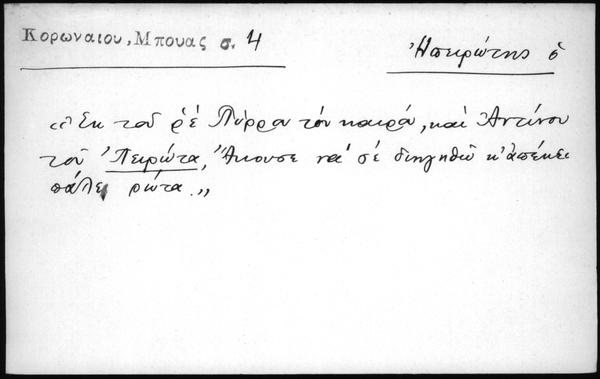 Κορωναιου, Μπουας σ. 4
Ἠπειρώτης ὁ
«Ἐκ τοῦ ρὲ Πύρρα τὸν καιρό, καὶ Ἀντίνου
τοῦ Ἠπειρώτα, Ἄκουσε νὰ σὲ διηγηθῶ κ' ἀπέκει
πάλε ρώτα.»